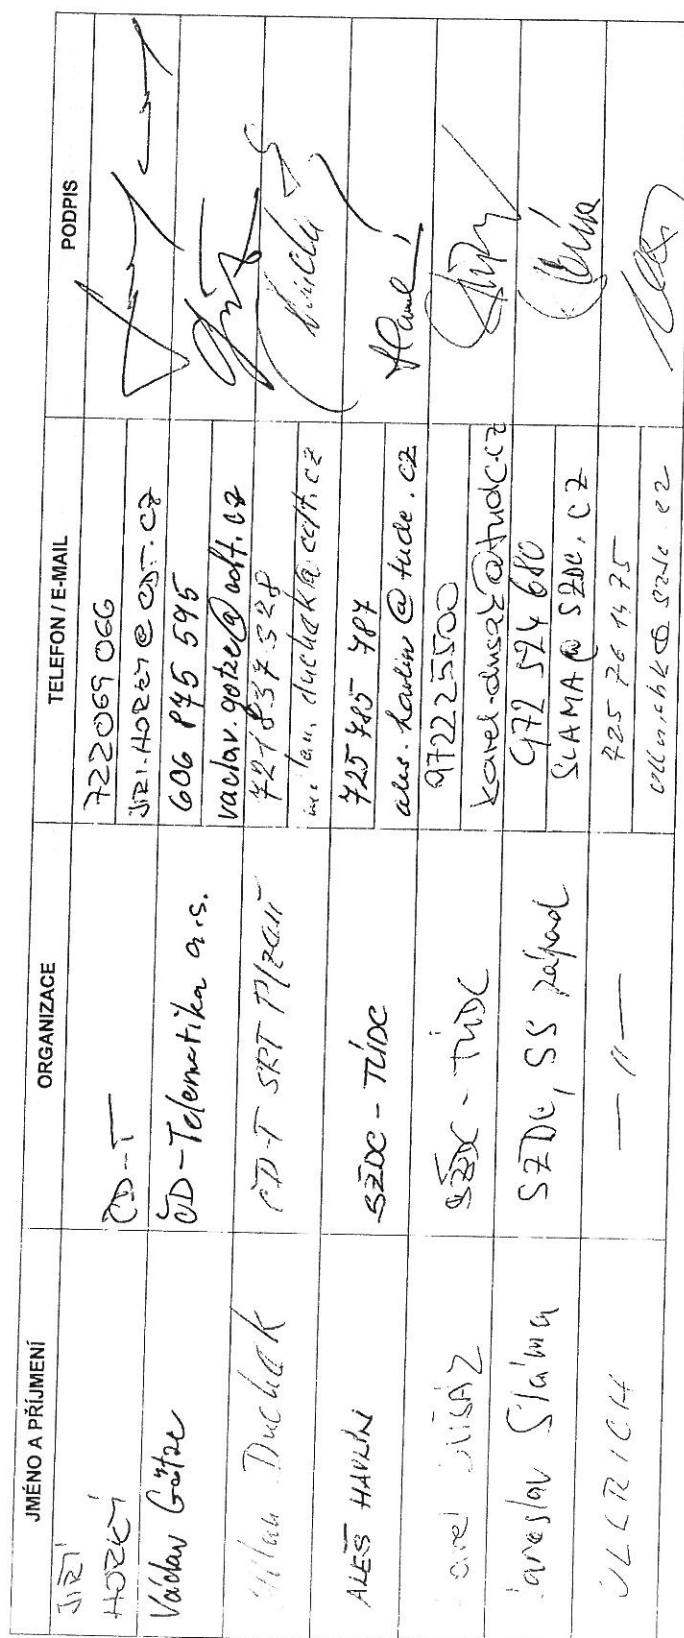 JMÉNO A PŘÍJMENÍ ORGANIZACE TELEFON / E-MAIL PODPIS
JIŘÍ HORKÝ ČD-T 722069066
JIRI.HORKY@CDT.CZ
Václav Götze ČD-Telematika a.s. 606 875 595
vaclav.gotze@cdt.cz
Milan Duchek ČD-T SRT Plzeň 721837328
milan.duchek@cdt.cz
ALEŠ HAVLÍN SŽDC - TÚDC 725 785 787
ales.havlin@tudc.cz
Karel DUSÁZ SŽDC - TÚDC 972225500
karel.dusaz@tudc.cz
Jaroslav Sláma SŽDC, SS západ 972 524 680
SLAMA@SZDC.CZ
ULLRICH — 〃 —